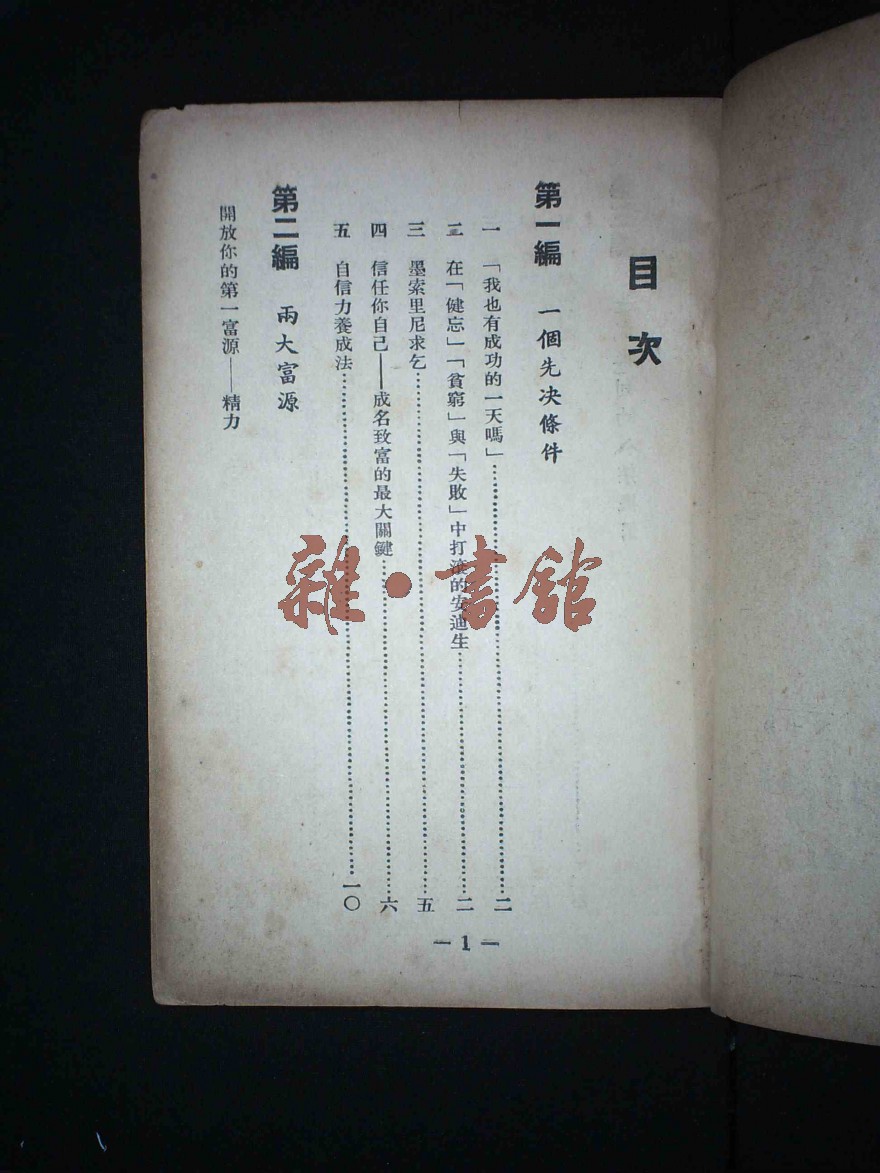 目次
第一編　一個先决條件
一　「我也有成功的一天嗎」……二
二　在「健忘」「貧窮」與「失敗」中打滾的安迪生……二
三　墨索里尼求乞……五
四　信任你自己——成名致富的最大關鍵……六
五　自信力養成法……一〇
第二編　兩大富源
開放你的第一富源——精力
— 1 —
雜·書館